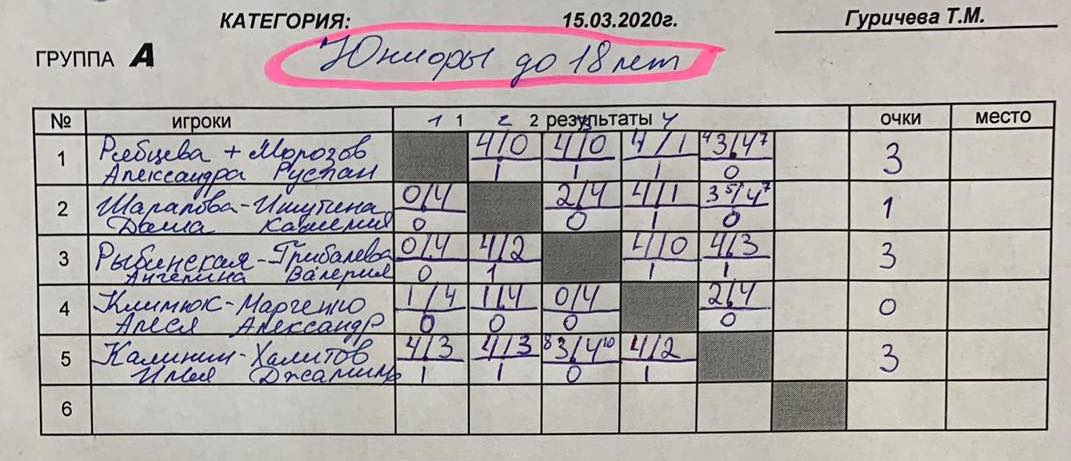 КАТЕГОРИЯ: 15.03.2020г. Гуричева Т.М.
ГРУППА А Юниоры до 18 лет
№ игроки 1 1 2 2 результаты 4 очки место
1 Рябцева + Морозов 4/0 4/0 4/1 4 3/4 7 3
Александра Руслан 1 1 1 0
2 Шарапова - 0/4 2/4 4/1 3 5/4 7 1
Даша Камелия 0 0 1 0
3 Рыбинская - Грибалева 0/4 4/2 4/0 4/3 3
Ангелина Валерия 0 1 1 1
4 Климюк - Марченко 1/4 1/4 0/4 2/4 0
Алеся Александр 0 0 0 0
5 Калинин - Халитов 4/3 4/3 8 3/4 10 4/2 3
Илья Джамиль 1 1 0 1
6